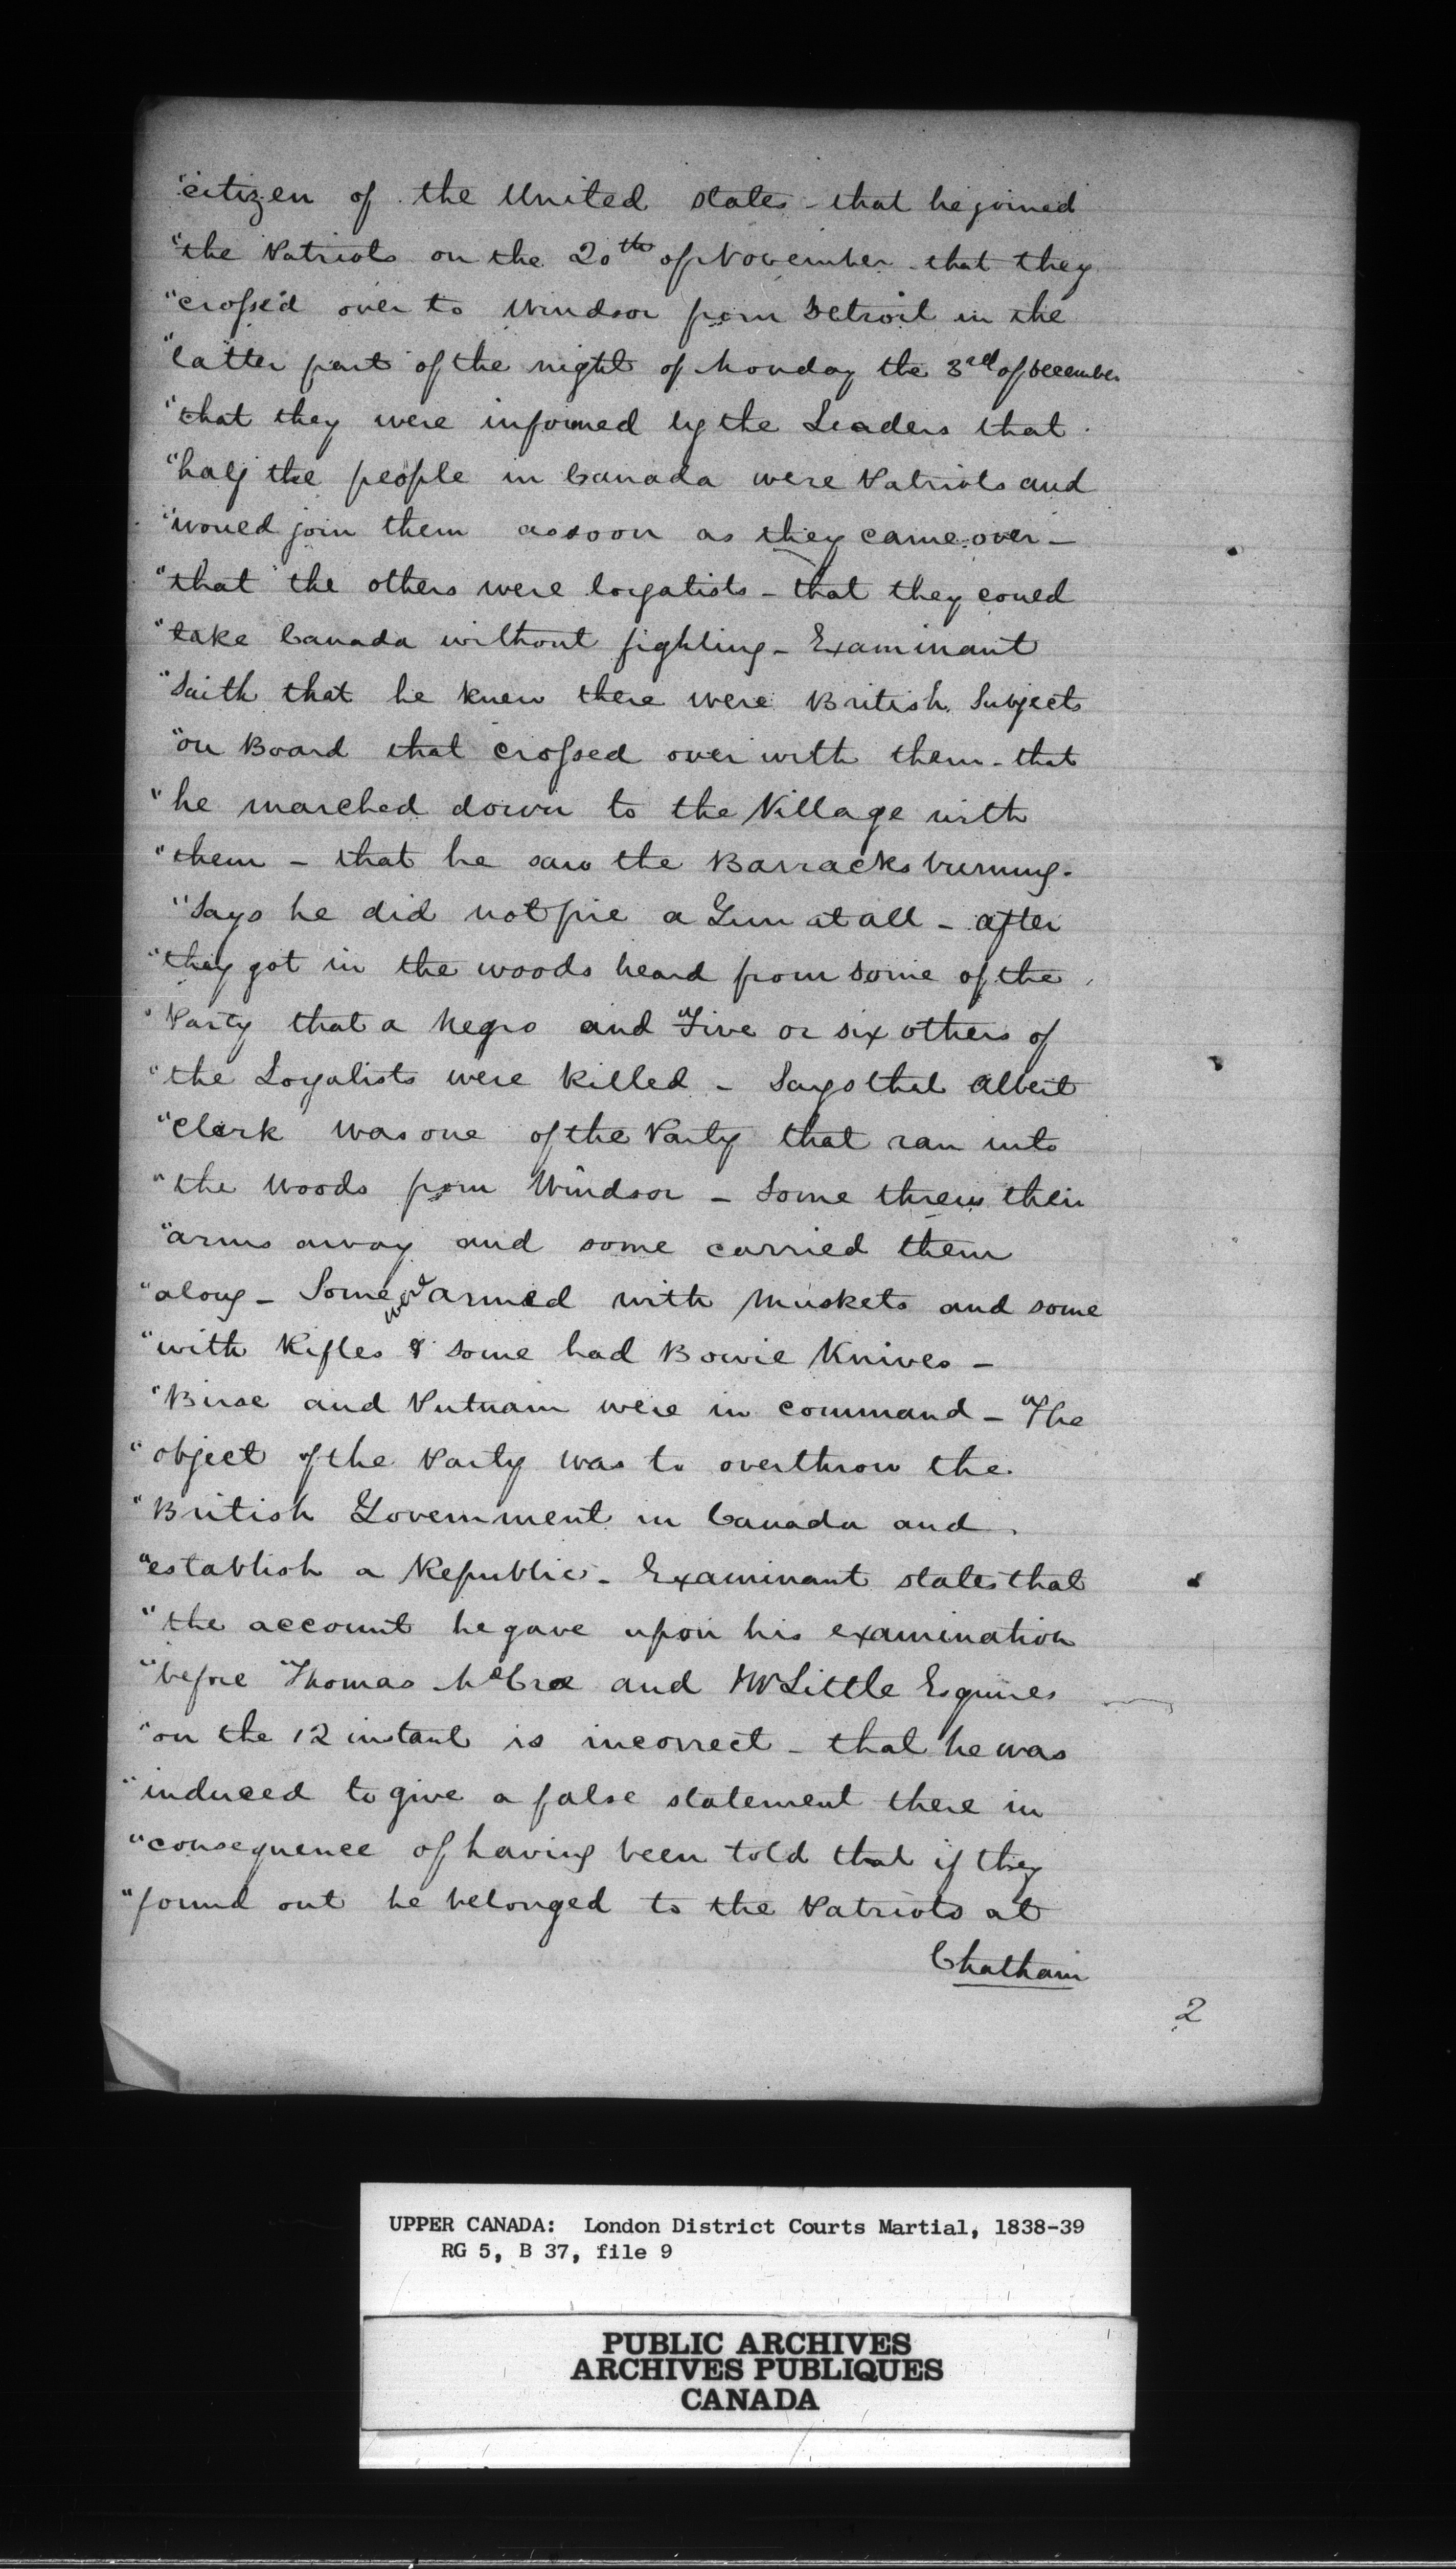 "citizen of the United States - that he joined
"the Patriots on the 20th of November - that they
"crossed over to Windsor from Detroit in the
"latter part of the night of Monday the 3rd of December
"that they were informed by the Leaders that
"half the people in Canada were Patriots and
"would join them as soon as they came over -
"that the others were loyalists - that they could
"take Canada without fighting - Examinant
"Saith that he knew there were British Subjects
"on Board that crossed over with them - that
"he marched down to the Village with
"them - that he saw the Barracks burning -
"Says he did not fire a Gun at all - after
"they got in the woods heard from some of the
"Party that a Negro and Five or six others of
"the Loyalists were killed - Says that Albert
"Clark was one of the Party that ran into
"the Woods from Windsor - Some threw their
"arms away and some carried them
"along - Some were armed with Muskets and some
"with Rifles & some had Bowie Knives -
"Birge and Putnam were in command - The
"object of the Party was to overthrow the
"British Government in Canada and
"establish a Republic - Examinant states that
"the account he gave upon his examination
"before Thomas McCrae and Little Esquires
"on the 12 instant is incorrect - that he was
"induced to give a false statement there in
"consequence of having been told that if they
"found out he belonged to the Patriots at
Chatham
2
UPPER CANADA: London District Courts Martial, 1838-39
RG 5, B 37, file 9
PUBLIC ARCHIVES
ARCHIVES PUBLIQUES
CANADA